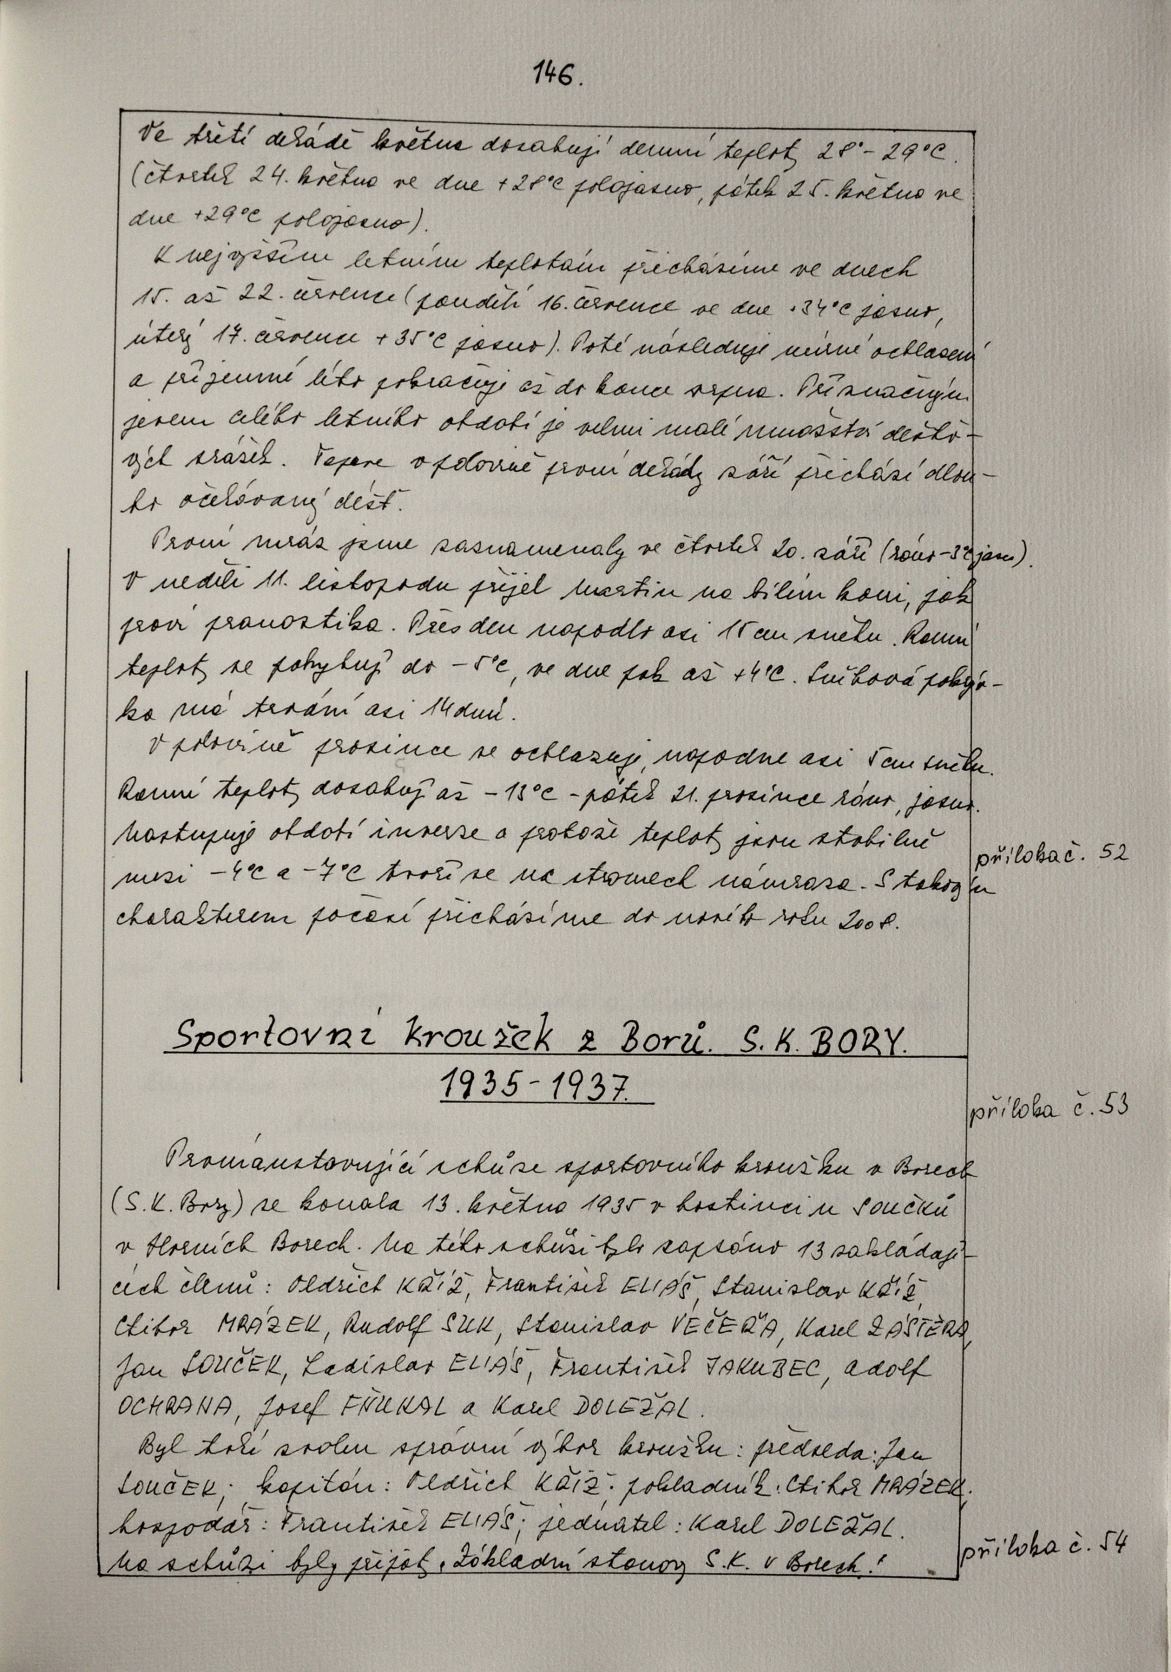 146.
Ve třetí dekádě května dosahují denní teploty 28°- 29°C.
(čtvrtek 24. května ve dne +28°C polojasno, pátek 25. května ve
dne +29°C polojasno).
K nejvyšším letním teplotám přicházíme ve dnech
15. až 22. července (pondělí 16. července ve dne +34°C jasno,
úterý 17. července +35°C jasno). Poté následuje mírné ochlazení
a příjemné léto pokračuje až do konce srpna. Příznačným
jevem celého letního období je velmi malé množství dešťo-
vých srážek. Teprve v polovině první dekády září přichází dlou-
ho očekávaný déšť.
První mráz jsme zaznamenaly ve čtvrtek 20. září (ráno -3°C jasno).
V neděli 11. listopadu přijel Martin na bílém koni, jak
praví pranostika. Přes den napadlo asi 15 cm sněhu. Ranní
teploty se pohybují do -5°C, ve dne pak až +4°C. Sněhová pokrýv-
ka má trvání asi 14 dnů.
V polovině prosince se ochlazuje, napadne asi 5 cm sněhu.
Ranní teploty dosahují až -13°C - pátek 21. prosince ráno, jasno.
Nastupuje období inverze a protože teploty jsou stabilně
mezi -4°C a -7°C tvoří se na stromech námraza. S takovým
charakterem počasí přicházíme do nového roku 2008.
příloha č. 52
Sportovní kroužek z Borů. S.K. BORY.
1935-1937.
příloha č. 53
První ustavující schůze sportovního kroužku v Borech
(S.K. Bory) se konala 13. května 1935 v hostinci u Součků
v Horních Borech. Na této schůzi bylo zapsáno 13 zakládají-
cích členů: Oldřich KŘÍŽ, František ELIÁŠ, Stanislav KŘÍŽ,
Ctibor MRÁZEK, Rudolf SUK, Stanislav VEČEŘA, Karel ZÁŠTĚRA,
Jan SOUČEK, Ladislav ELIÁŠ, František JAKUBEC, Adolf
OCHRANA, Josef FŇUKAL a Karel DOLEŽAL.
Byl též zvolen správní výbor kroužku: předseda: Jan
SOUČEK; kapitán: Oldřich KŘÍŽ; pokladník: Ctibor MRÁZEK;
hospodář: František ELIÁŠ; jednatel: Karel DOLEŽAL.
Na schůzi byly přijaty "Základní stanovy S.K. v Borech."
příloha č. 54